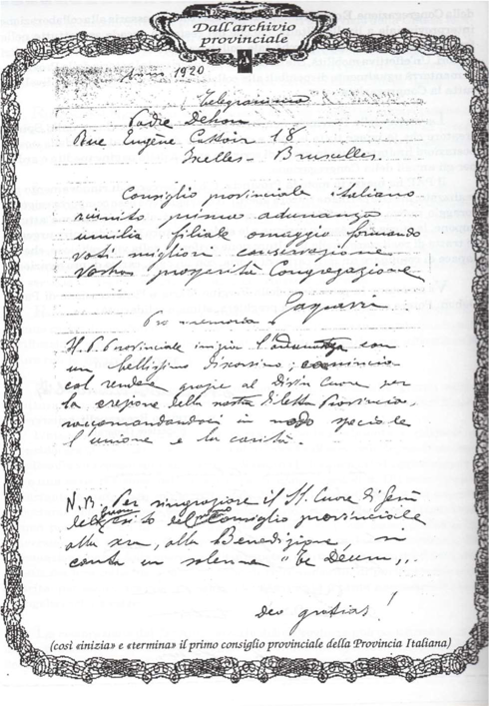 Dall'archivio
provinciale
Anno 1920
Telegramma
Padre Dehon
Rue Eugène Cattoir 18
Ixelles - Bruxelles.
Consiglio provinciale italiano
riunito prima adunanza
umilia filiale omaggio formando
voti migliori conservazione
Vostra prosperità Congregazione
Gasparri
Pro memoria
Il P. Provinciale inizia l'adunanza con
un bellissimo discorsino; comincia
col rendere grazie al Divin Cuore per
la erezione della nostra diletta Provincia,
raccomandandoci in modo speciale
l'unione e la carità.
N.B. Per ringraziare il SS. Cuore di Gesù
del buon esito del Consiglio provinciale
alla sera, alla Benedizione, si
canta un solenne "Te Deum".
Deo gratias!
(così «inizia» e «termina» il primo consiglio provinciale della Provincia Italiana)